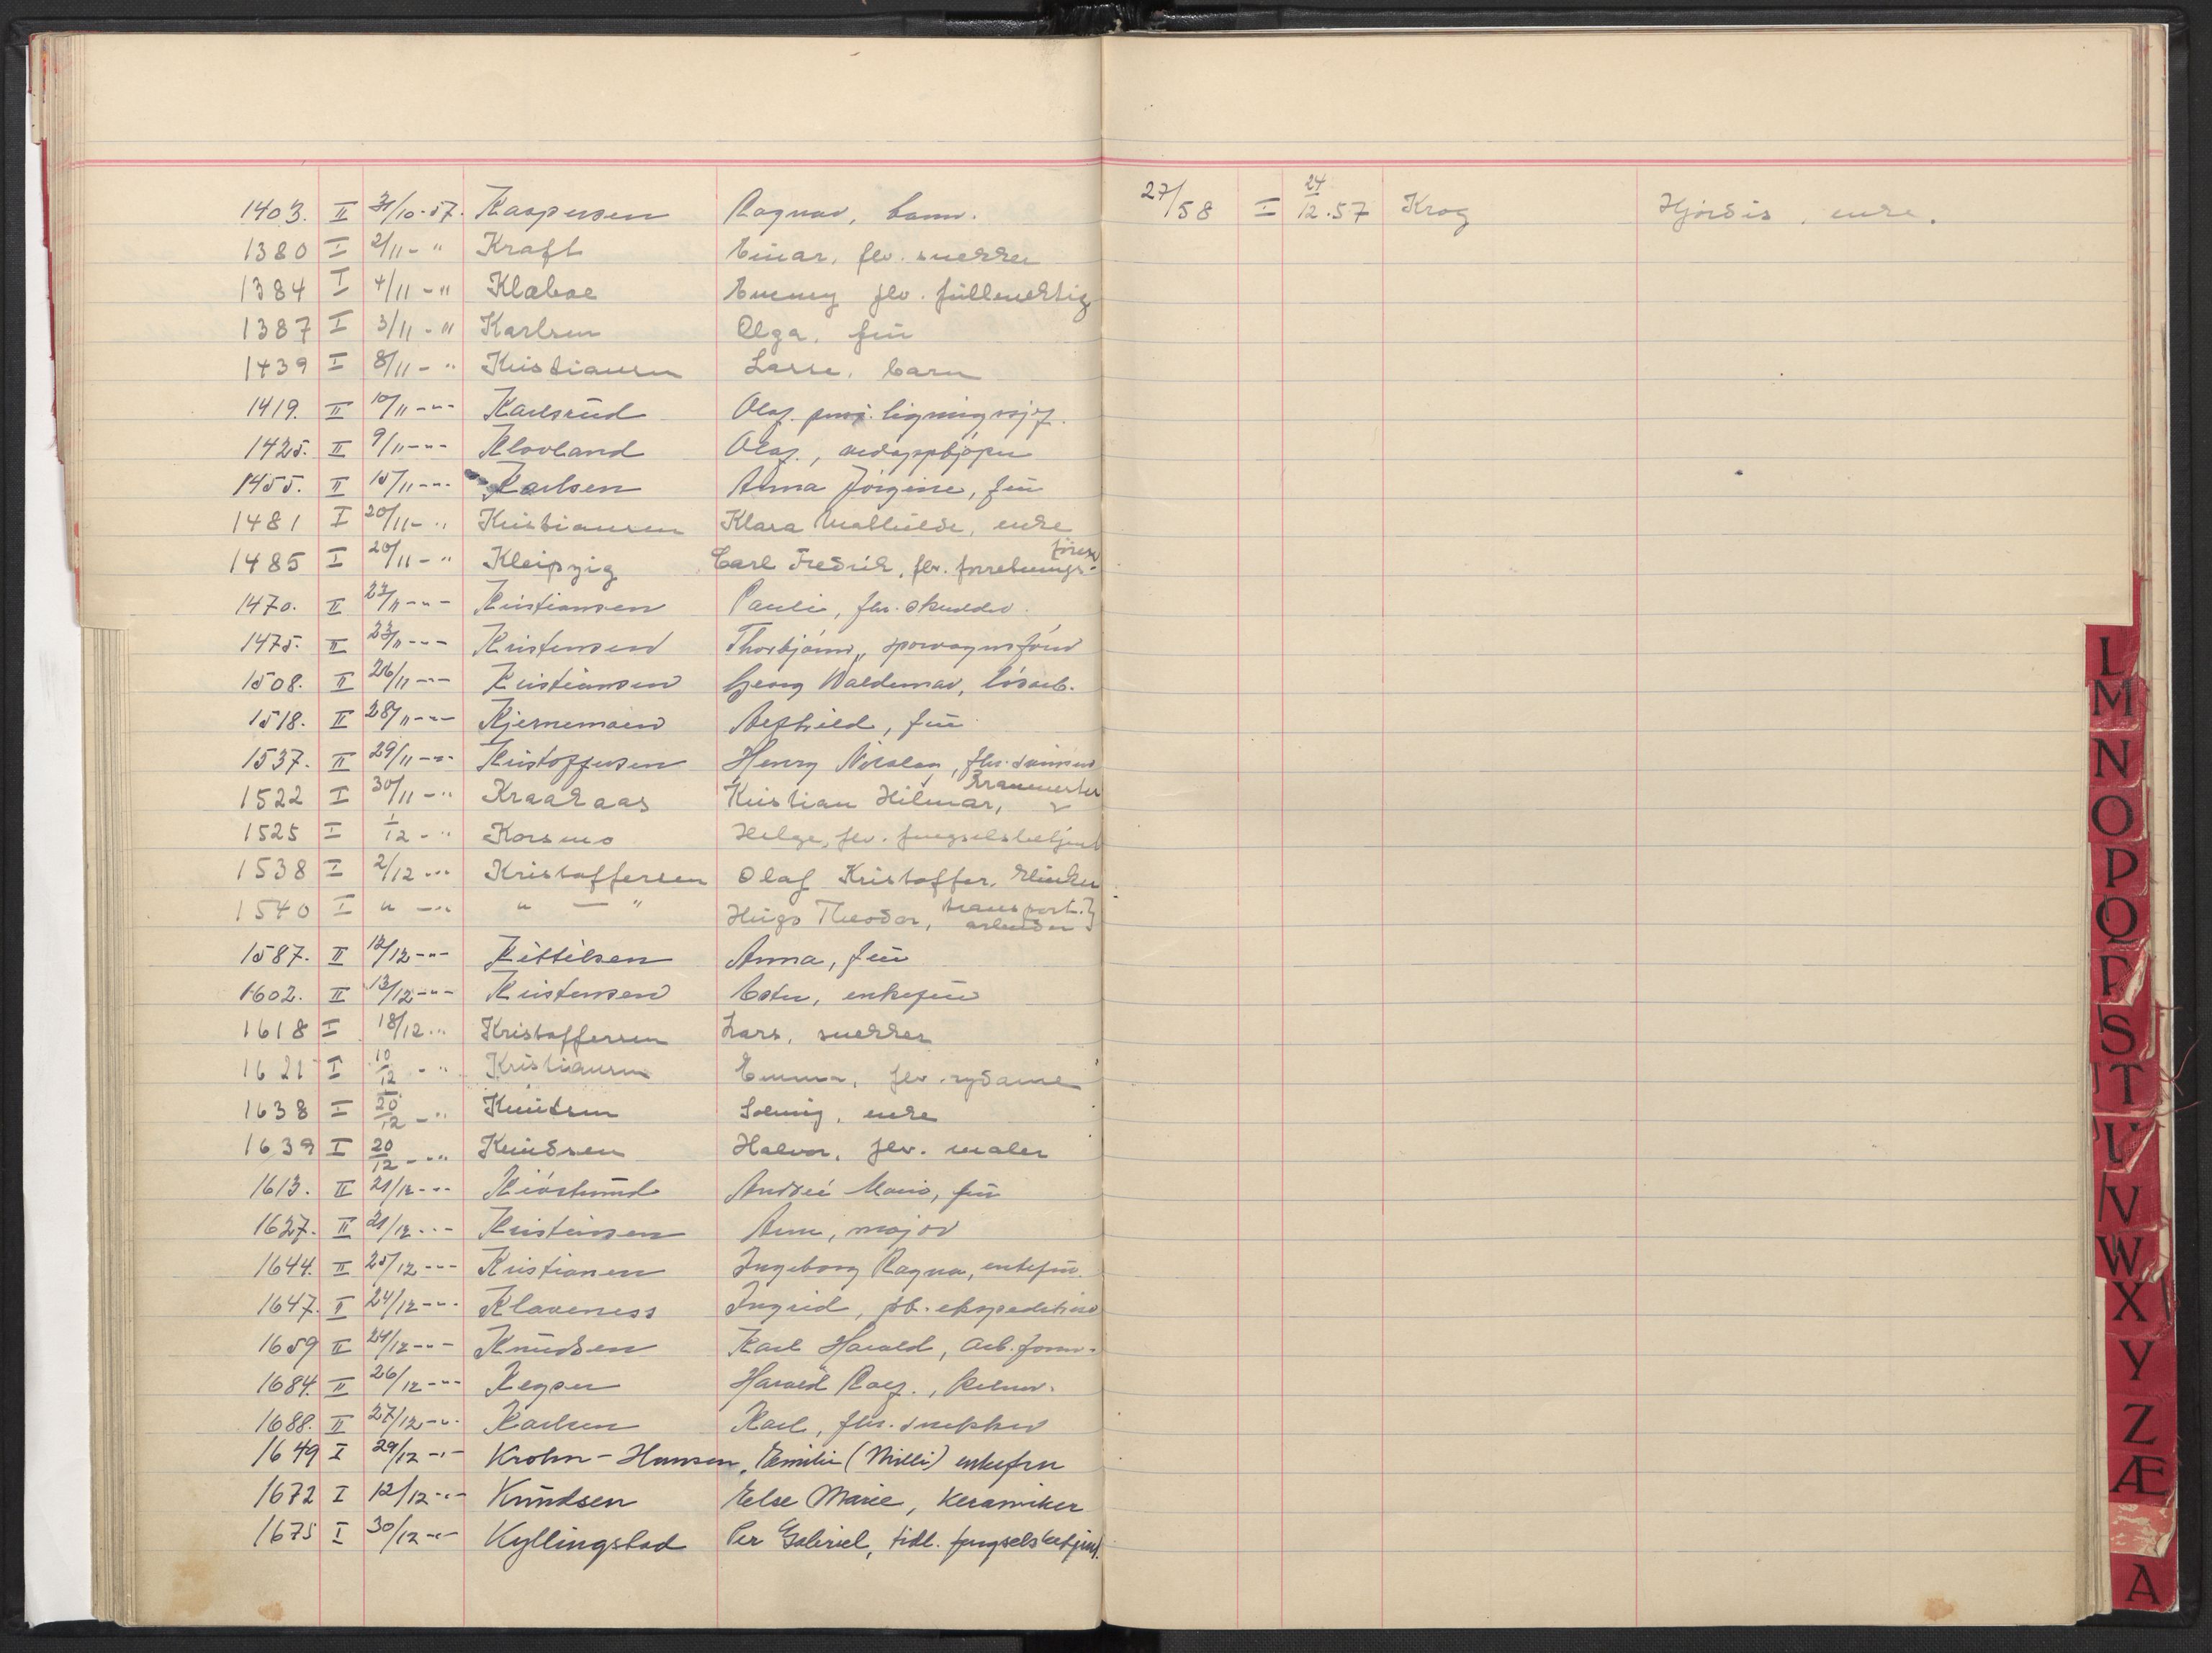 1403. II 31/10-57. Kaspersen Ragnar, barn.
1380 I 2/11 - " Kraft Einar, flv. snekker
1384 I 4/11 - " Klaboe Emmy flv. fullmektig
1387 I 3/11 - " Karlsen Olga, frü
1439 I 8/11 - " Kristiansen Lasse, barn
1419. II 10/11 - " - Karlsrud Olaf ligningssjef.
1425. II 9/11 - " - Klovland Olaf, vedoppkjøper
1455. II 15/11 - " - Karlsen Anna Jörgine, frü
1481 I 20/11 - " Kristiansen Klara Mathilde, enke
1485 I 20/11 - " Kleipzig Carl Fredrik, flv. forretnings-
1470. II 22/11 - " - Kristiansen Pauli, fhv. skredder.
1475. II 23/11 - " - Kristensen Thorbjörn, sporvognsförer
1508. II 26/11 - " - Kristiansen Georg Waldemar, lösarb.
1518. II 28/11 - " - Kjernemoen Alfhild, frü
1537. II 29/11 - " - Kristoffersen Henry Nicolay, fhv.
1522 I 30/11 - " Kraakaas Kristian Hilmar,
1525 I 1/12 - " Korsmo Helge, flv. fengselsbetjent
1538 I 2/12 - " Kristoffersen Olaf Kristoffer, klinker
1540 I " - " " — " Hügo Theodor, transport. arbeider
1587. II 12/12 - " - Kittilsen Anna, frü
1602. II 13/12 - " - Kristensen Ester, enkefrü
1618 I 18/12 - " Kristoffersen Lars, snekker
1621 I 10/12 - " Kristiansen Emma, flv. sydame
1638 I 20/12 - " Knüdsen Solveig, enke
1639 I 20/12 - " Knüdsen Halvor, flv. maler
1613. II 21/12 - " - Andrée Marie, frü
1627. II 21/12 - " - Kristiansen Arne, major
1644. II 25/12 - " - Kristiansen Ingeborg Ragna, enkefrü.
1647. II 24/12 - " - Klaveness Ingrid, pb. ekspeditrise
1659 II 24/12 - " - Knüdsen Karl Harald, arb. form.
1684. II 26/12 - " - Keyser Harald Rolf., kelner.
1688. II 27/12 - " - Karlsen Karl, fhv. snekker
1649 I 29/12 - " - Krohn-Hansen, Emilie (Milli) enkefru
1672 I 12/12 - " - Knüdsen Else Marie, keramiker
1675 I 30/12 - " - Kyllingstad Per Gabriel, tidl. fengselsbetjent.
27/58 I 24/12.57 Krog Hjördis, enke.
L
M
N
O
P
Q
R
S
T
U
V
W
X
Y
Z
Æ
A